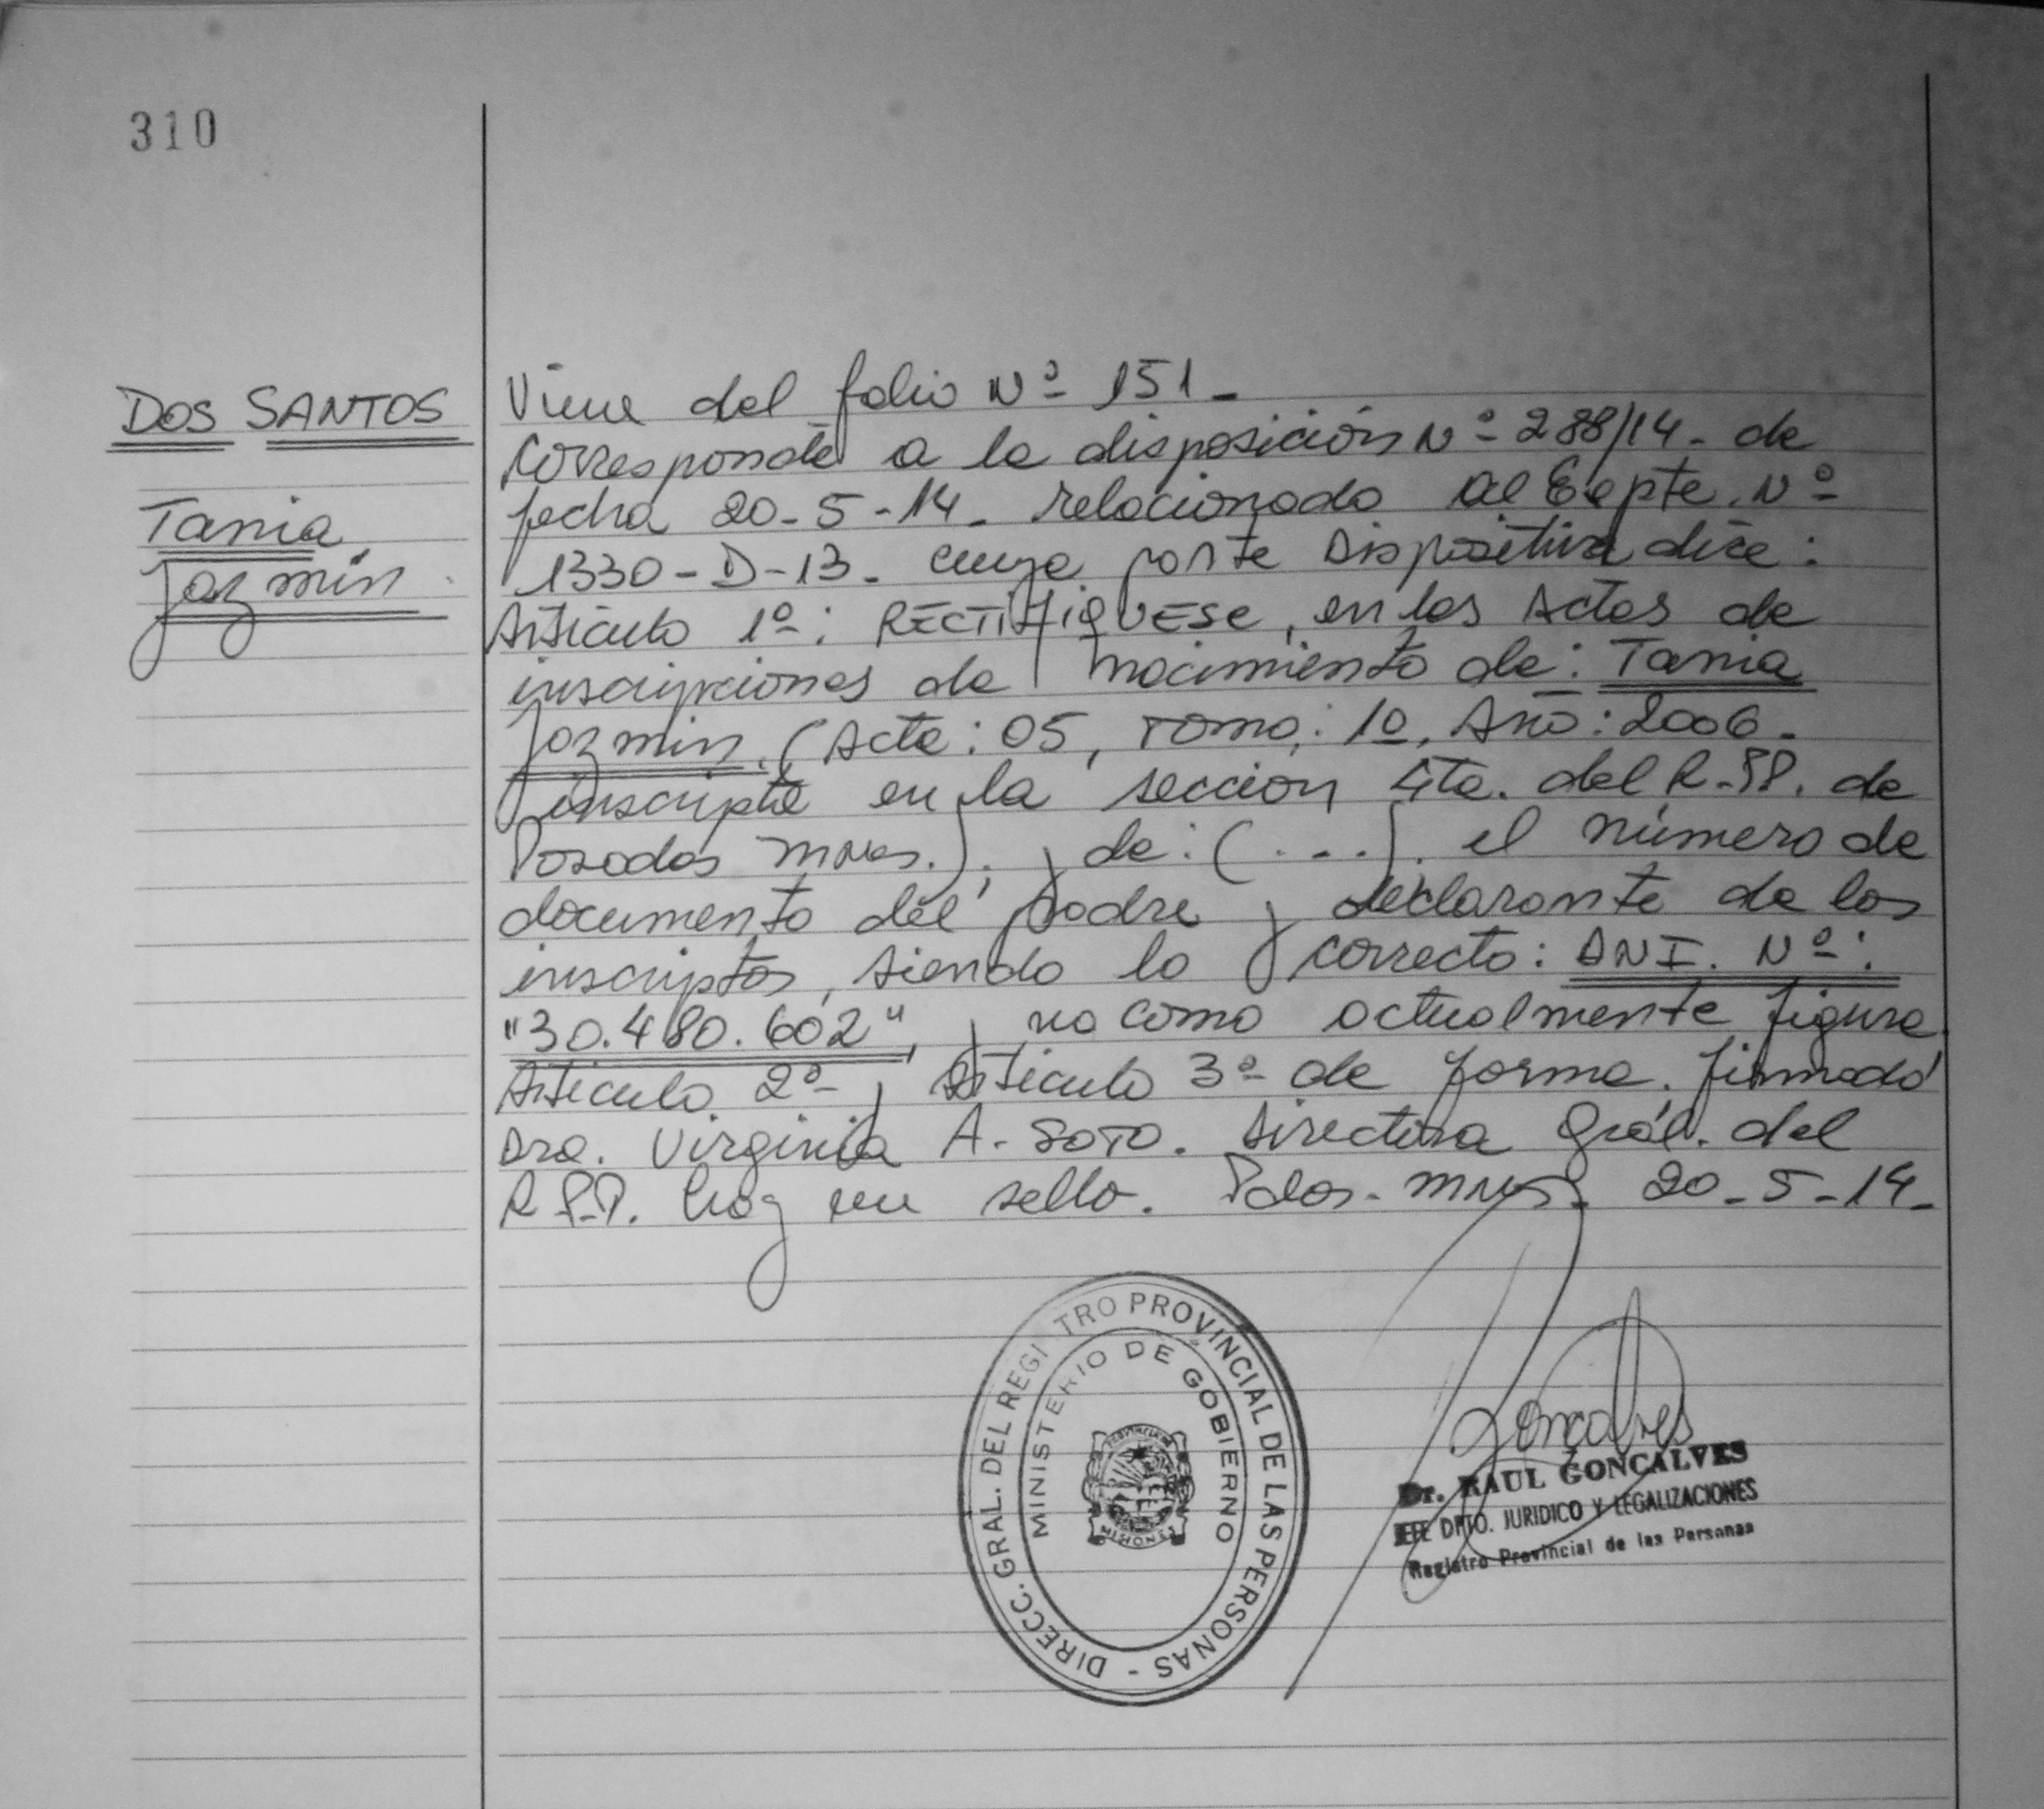 310
DOS SANTOS
Tania
Jazmín
Viene del folio Nº 151-
Corresponde a la disposición Nº 288/14- de
fecha 20-5-14- relacionado al Expte. Nº
1330-D-13- cuya parte Dispositiva dice:
Artículo 1º: RECTIFIQUESE, en las Actas de
inscripciones de nacimiento de: Tania
Jazmín. (Acta: 05, Tomo: 1º, Año: 2006-
inscripta en la sección 4ta. del R.PP. de
Posadas Mnes.), y de: (....). el número de
documento del padre y declarante de los
inscriptos, siendo lo correcto: DNI. Nº:
"30.480.602", y no como actualmente figura
Artículo 2º y Artículo 3º de forma. firmado
Dra. Virginia A. SOTO. Directora Gral. del
R.P.P. hay un sello. Pdas. Mnes. 20-5-14-
DIRECC. GRAL. DEL REGISTRO PROVINCIAL DE LAS PERSONAS -
MINISTERIO DE GOBIERNO
MISIONES
Goncalves
Dr. RAUL GONCALVES
JEFE DPTO. JURIDICO Y LEGALIZACIONES
Registro Provincial de las Personas